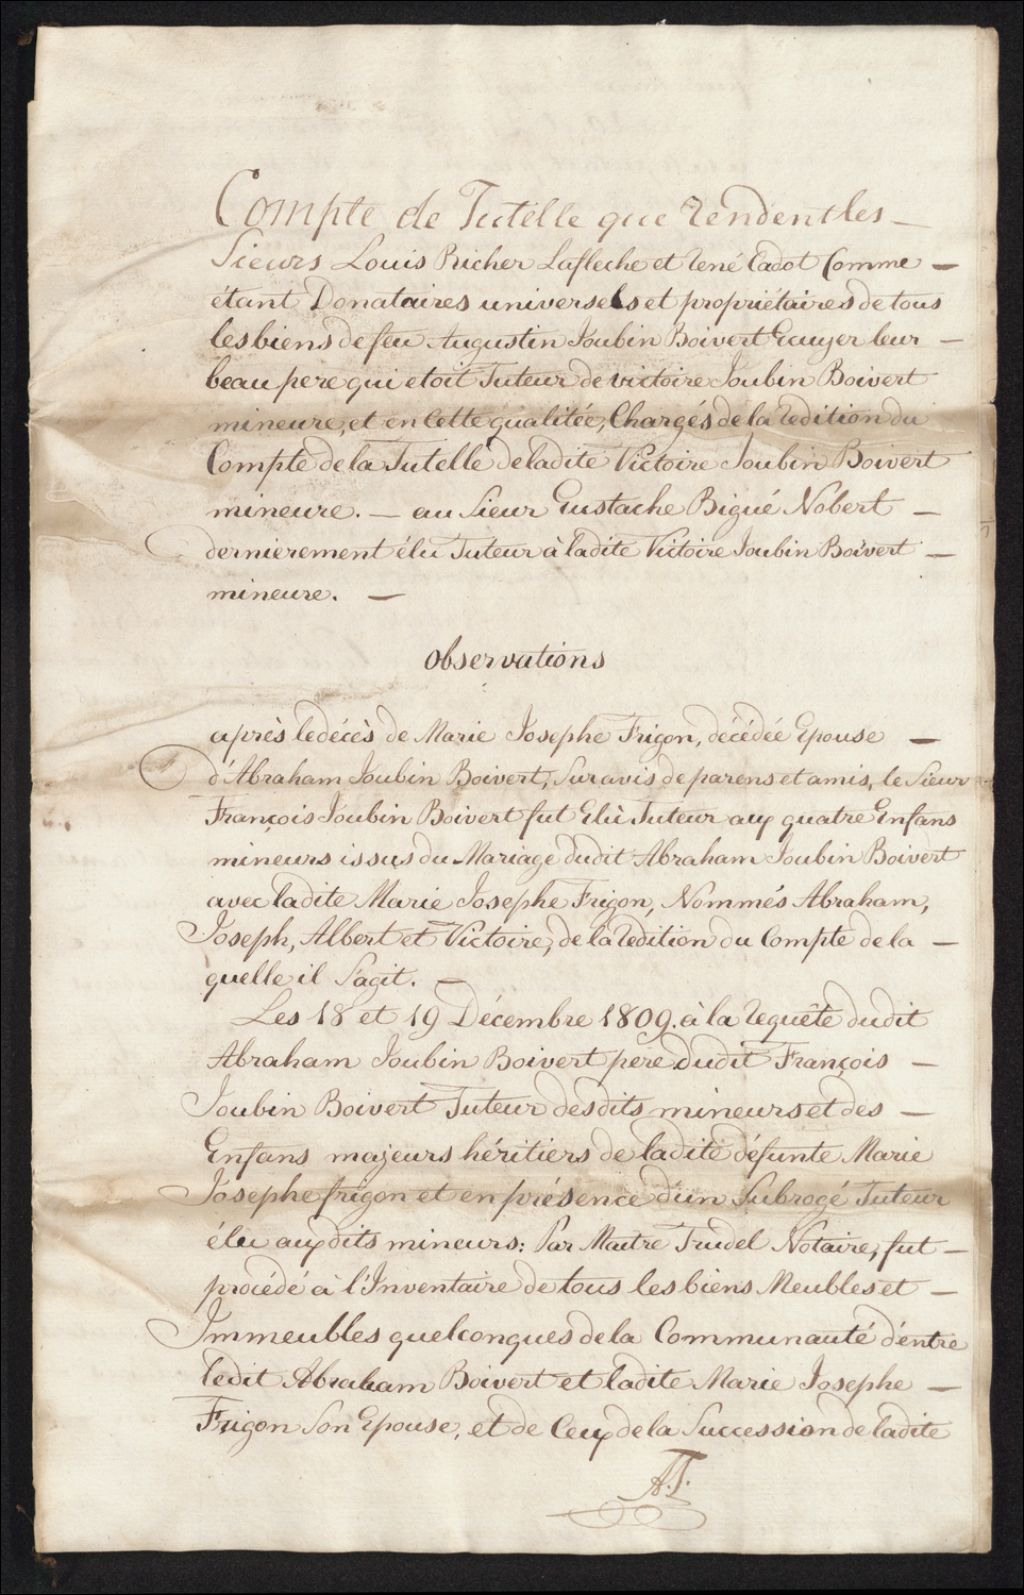 Compte de Tutelle que rendent les —
Sieurs Louis Richer Lafleche et René Cadot Comme —
étant Donataires universels et propriétaires de tous
les biens de feu Augustin Joubin Boivert Ecuyer leur —
beau pere qui etoit Tuteur de victoire Joubin Boivert
mineure, et en Cette qualitée, Chargés de la redition du
Compte de la Tutelle de ladite Victoire Joubin Boivert
mineure. — au Sieur Eustache Bigué Nobert —
dernierement élu Tuteur à ladite Victoire Joubin Boivert —
mineure. —
Observations
après le décès de Marie Josephe Frigon, décédée Epouse —
d'Abraham Joubin Boivert, Sur avis de parens et amis, le Sieur
François Joubin Boivert fut Elu Tuteur aux quatre Enfans
mineurs issus du Mariage dudit Abraham Joubin Boivert
avec ladite Marie Josephe Frigon, Nommés Abraham,
Joseph, Albert et Victoire, de la redition du Compte de la —
quelle il S'agit. —
Les 18 et 19 Décembre 1809. à la requête dudit
Abraham Joubin Boivert pere dudit François —
Joubin Boivert Tuteur desdits mineurs et des —
Enfans majeurs héritiers de ladite défunte Marie
Josephe frigon et en présence d'un Subrogé Tuteur
élu auxdits mineurs: Par Maitre Trudel Notaire, fut —
procédé à l'Inventaire de tous les biens Meubles et —
Immeubles quelconques de la Communauté d'entre
ledit Abraham Boivert et ladite Marie Josephe —
Frigon Son Epouse, et de Ceux de la Succession de ladite
A.T.